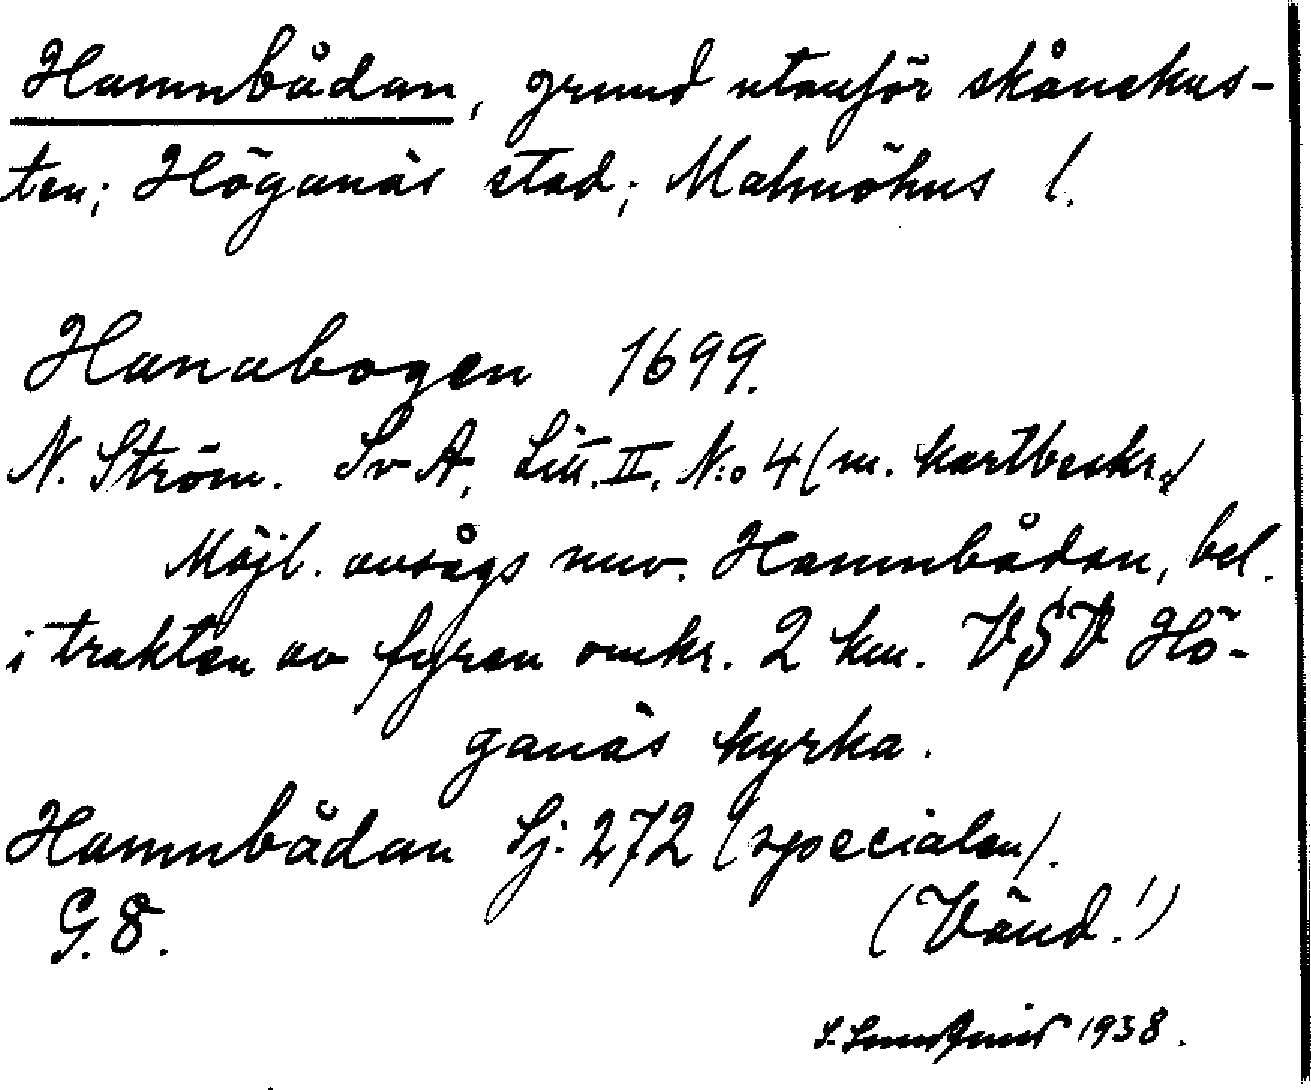 Hamnbådan, grund utanför skånekus-
ten; Höganäs stad; Malmöhus l.
Hanabogen 1699.
N. Ström. SvA, Litt. II, N:o 4 (m. kartbeskr.)
Möjl. avsågs nuv. Hamnbådan, bel.
i trakten av fyren omkr. 2 km. VSV Hö-
ganäs kyrka.
Hamnbådan Sj: 272 (specialen).
G. 8.
(Vänd!)
1938.